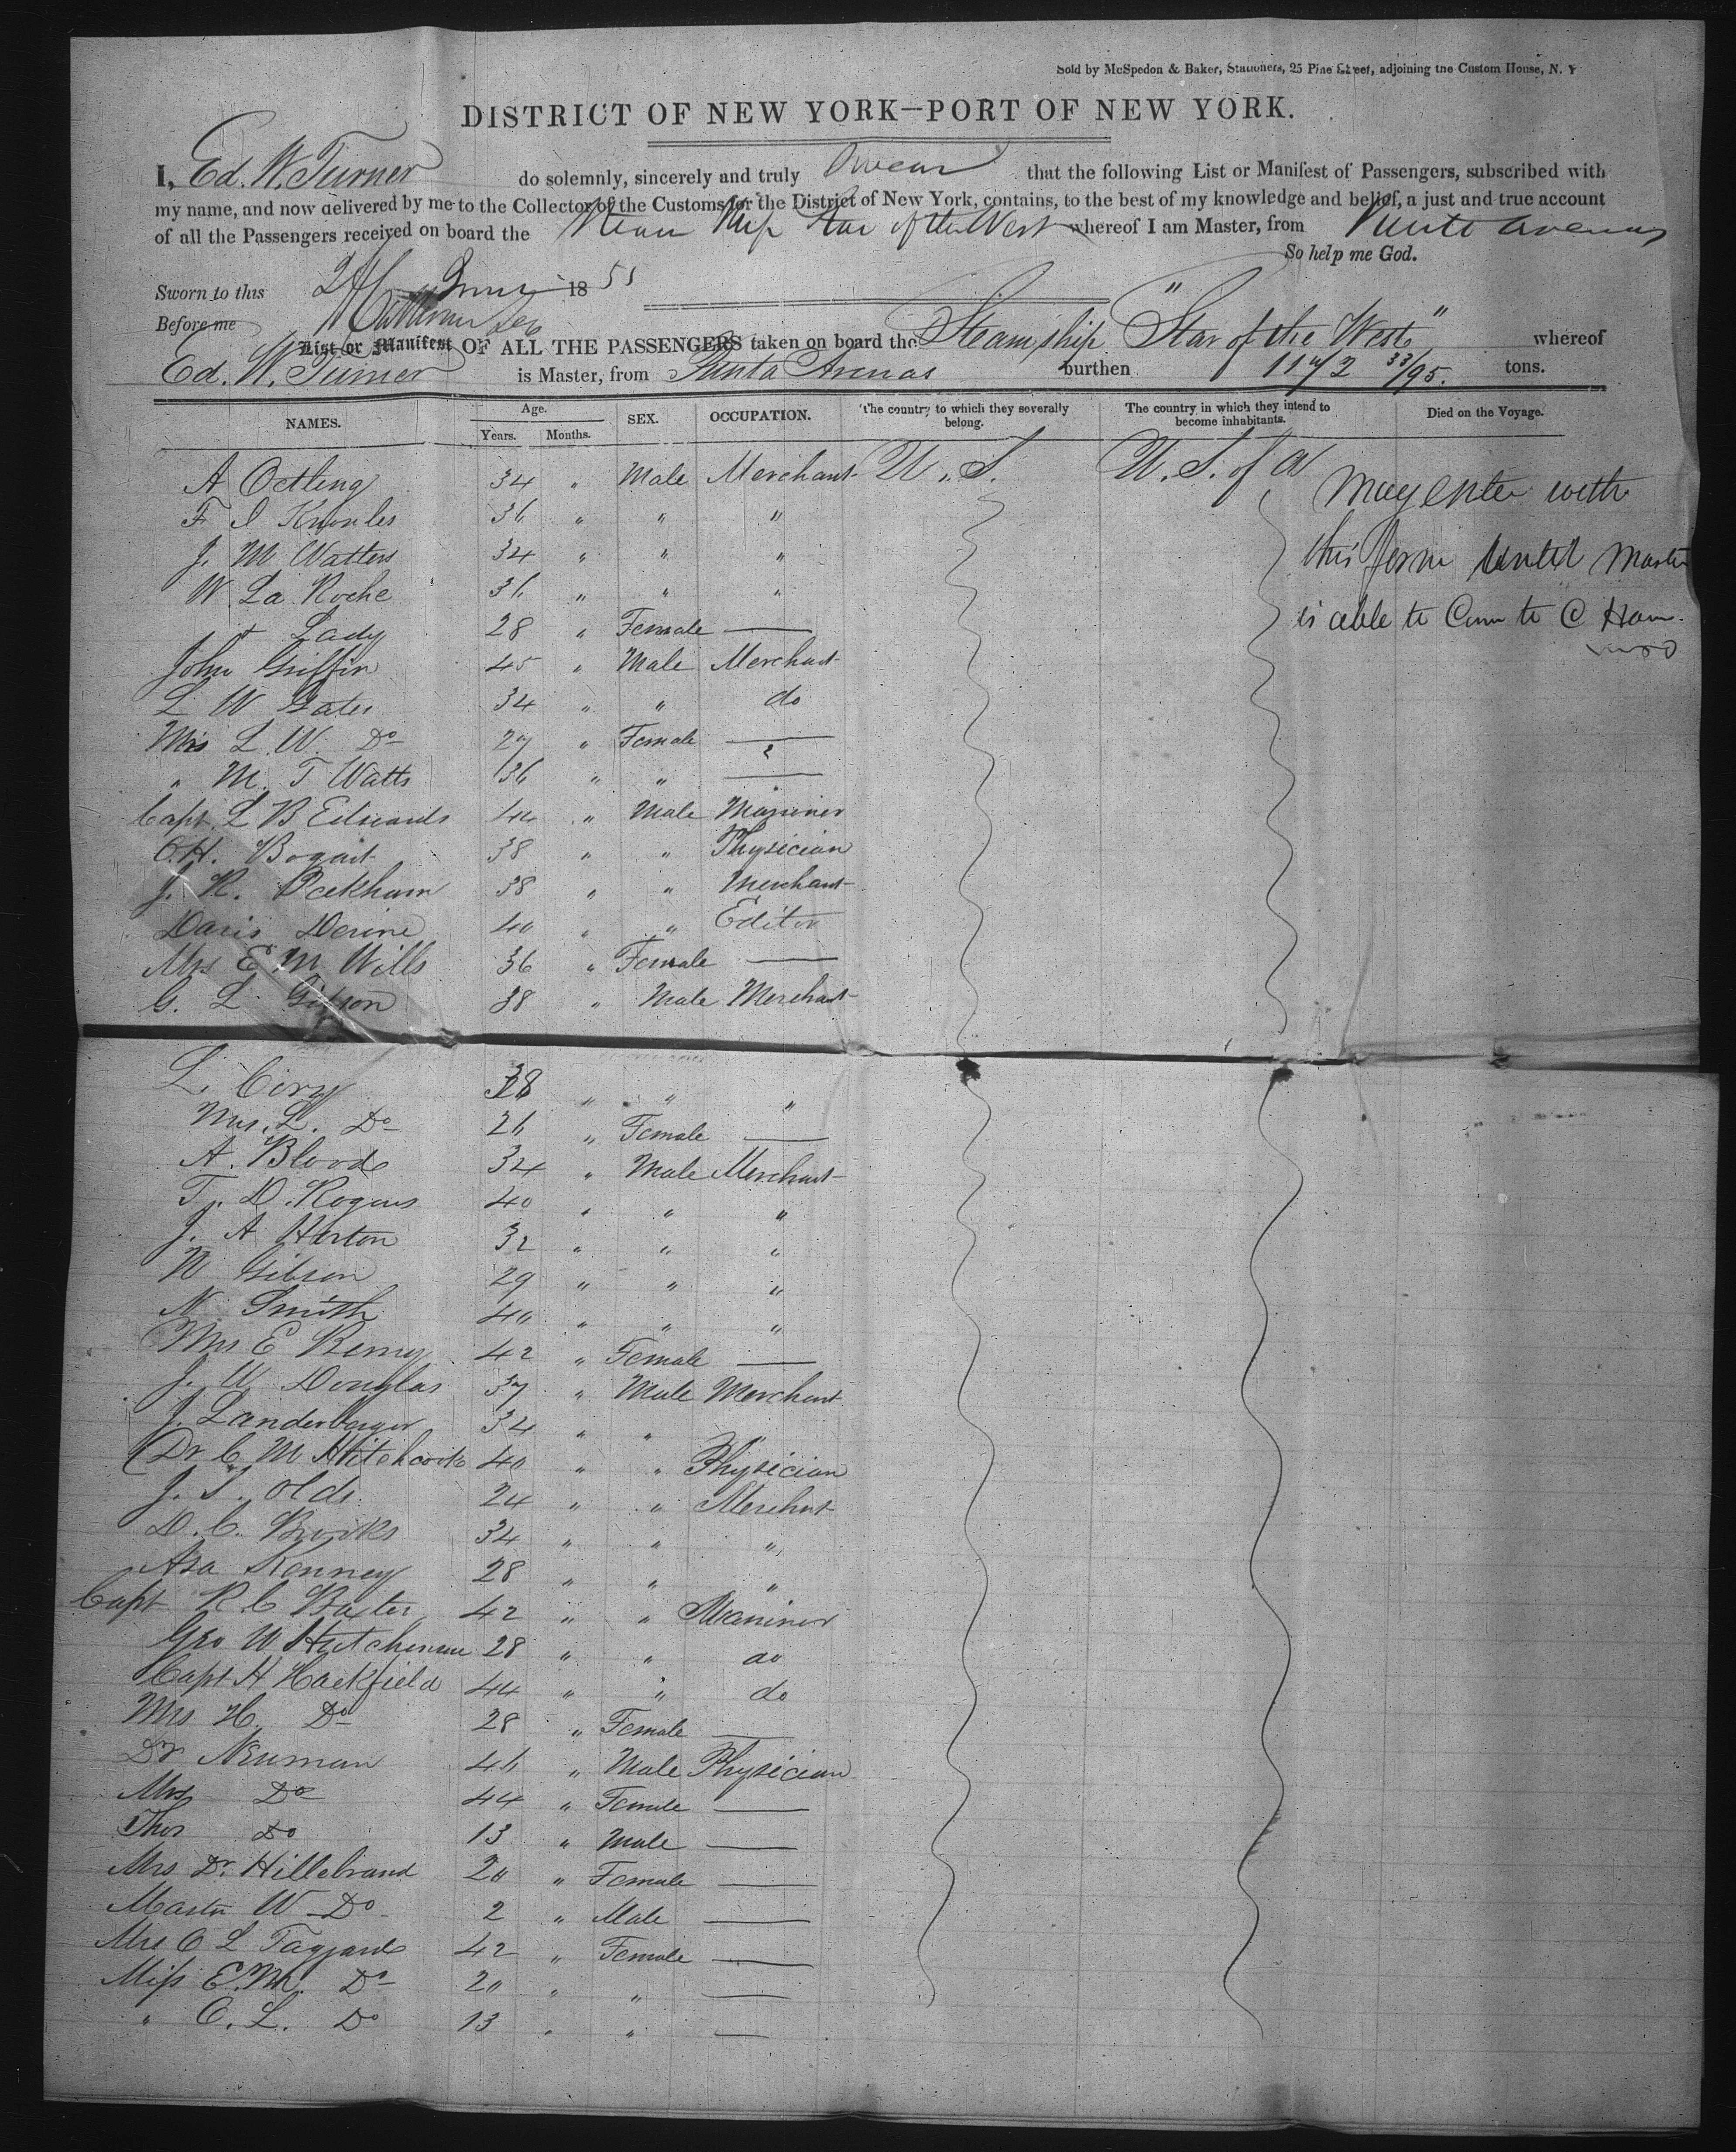 Sold by McSpedon & Baker, Stationers, 25 Pine Street, adjoining the Custom House, N. Y
DISTRICT OF NEW YORK—PORT OF NEW YORK.
I, Ed. W. Turner do solemnly, sincerely and truly Swear that the following List or Manifest of Passengers, subscribed with
my name, and now delivered by me to the Collector of the Customs for the District of New York, contains, to the best of my knowledge and belief, a just and true account
of all the Passengers received on board the Steam Ship Star of the West whereof I am Master, from Punta Arenas
So help me God.
Sworn to this 24 1855
Before me
List or Manifest OF ALL THE PASSENGERS taken on board the Steamship "Star of the West" whereof
Ed. W. Turner is Master, from Punta Arenas burthen 1172 33/95. tons.
NAMES. Age. Years. Months. SEX. OCCUPATION. The country to which they severally belong. The country in which they intend to become inhabitants. Died on the Voyage.
A Oetling 34 " Male Merchant U. S. U. S. of A
F I Knowles 36 " " "
J. M Watters 34 " " "
W. La Roche 36 " " "
" + Lady 28 " Female —
John Griffin 45 " Male Merchant
L W Gates 34 " " do
Mrs L. W. Do 27 " Female —
" M. T Watts 36 " " —
Capt. L B Edwards 44 " Male Mariner
O.H. Bogart 38 " " Physician
J. R. Peckham 38 " " Merchant
Davis Devine 40 " " Editor
Mrs E M Wills 36 " Female —
G. L. Gibson 38 " Male Merchant
May enter with
this form until Master
is able to Come to C House.
L. Cory 38 " " "
Mrs. L. Do 26 " Female —
A. Blood 34 " Male Merchant
T. D. Rogers 40 " " "
J. A Horton 32 " " "
W Gibson 29 " " "
N Smith 40 " " "
Mrs E Remy 42 " Female —
J. W Douglas 37 " Male Merchant
J. Landerberger 34 " "
Dr C M Hitchcock 40 " " Physician
J. S. Olds 24 " " Merchant
D. C. Brooks 34 " " "
Asa Kenney 28 " " "
Capt R. C Baxter 42 " " Mariner
Geo W Hutchinson 28 " " do
Capt H Hackfield 44 " " do
Mrs H. Do 28 " Female —
Dr Neuman 46 " Male Physician
Mrs Do 44 " Female —
Thos Do 13 " Male —
Mrs Dr. Hillebrand 20 " Female —
Master W Do 2 " Male —
Mrs O L Taggard 42 " Female —
Miss E. M. Do 20 " " —
" O. L. Do 13 " " —